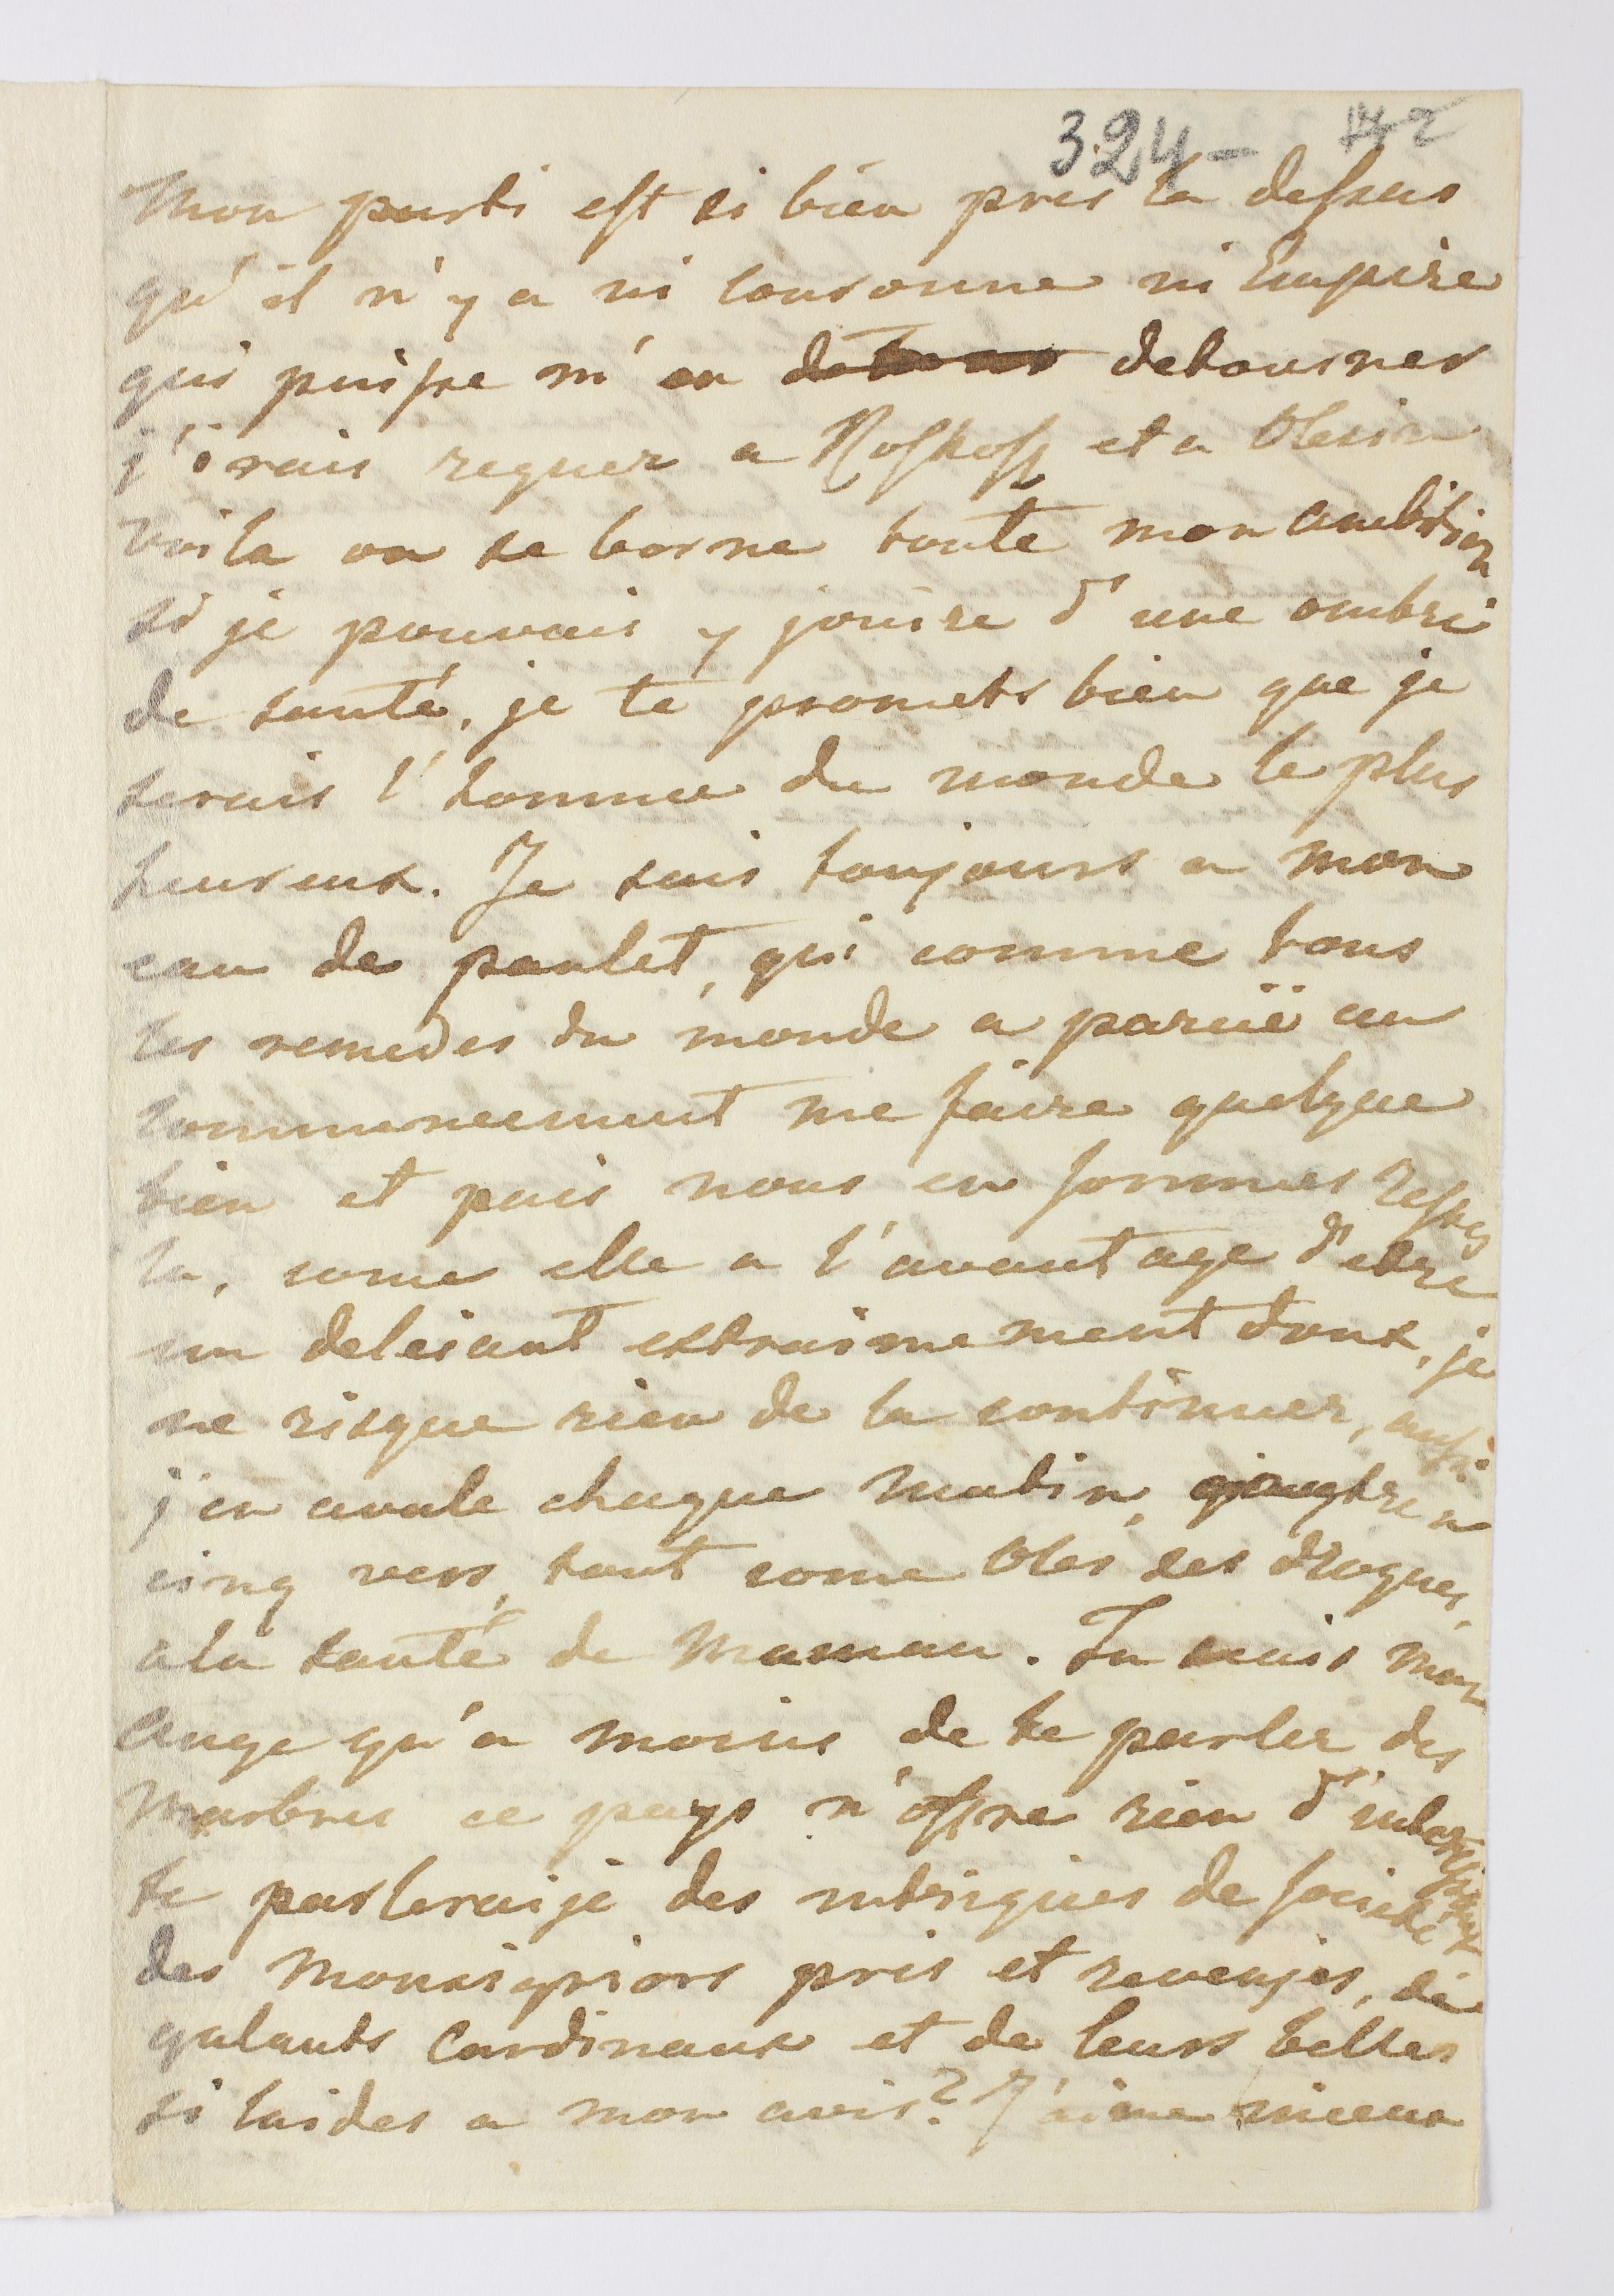 324 — 142
Mon parti est si bien pris la dessus
qu'il n'y a ni couronne ni Empire
qui puisse m'en detourner
j'irais regner a Roskoss et a Olesin
voila ou se borne toute mon ambition
si je pouvais y jouire d'une ombre
de santé, je te promets bien que je
serais l'homme du monde le plus
heureux. Je suis toujours a mon
eau de poulet, qui comme tous
les remedes du monde a paruë au
commencement me faire quelque
bien et puis nous en sommes restes
la, come elle a l'avantage d'etre
un deleiant extraimement doux, je
ne risque rien de la continuer, aussi
j'en avale chaque matin, quatre a
cinq vers, tout come les drogues,
a la santé de Maman. Tu sais mon
Ange qu'a moins de te parler des
Marbres ce pays n'offre rien d'interessant
te parleraije des intrigues de societé
des Monsigniors pris et revenjes, de
galants Cardinaux et de leurs belles
si laides a mon avis? J'aime mieux